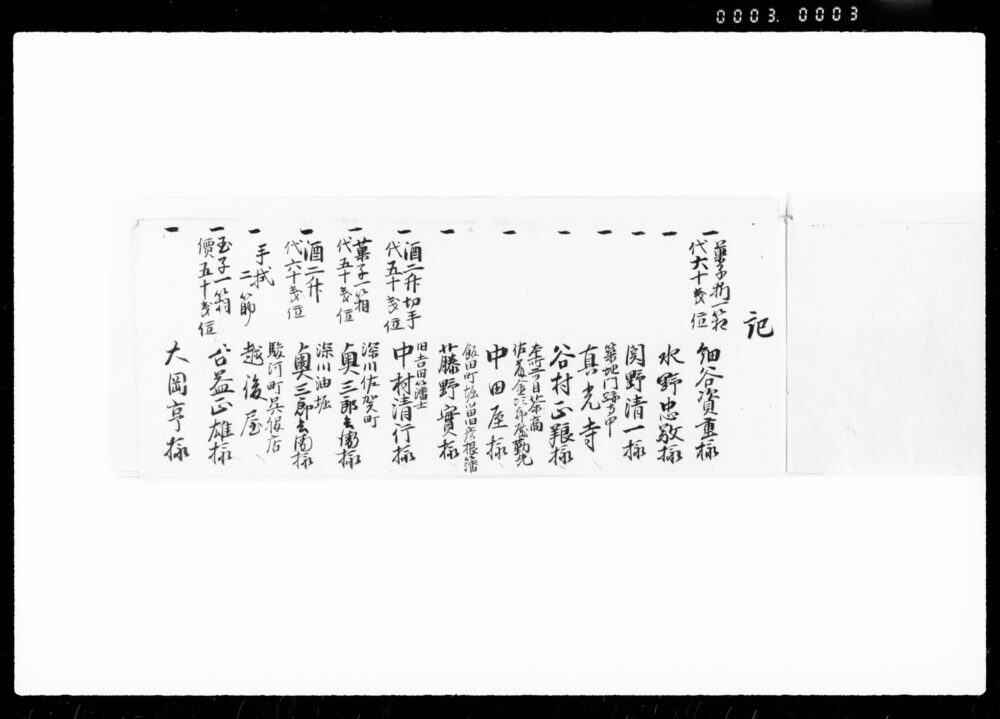 0003. 0003
記
一 菓子折一箱
代六十銭位
細谷資重様
一 水野忠敬様
一 関野清一様
築地門跡寺中
一 真光寺
一 谷村正羪様
本所二丁目茶商
佐藤金次郎盛勤先
一 中田座様
飯田町堀留旧彦根藩
一 藤野實様
旧吉田藩士
一 酒二升切手
代五十銭位
中村清行様
深川佐賀町
一 菓子一箱
代五十銭位
奥三郎兵衛様
深川油堀
一 酒二升
代六十銭位
奥三郎兵衛様
駿河町呉服店
一 手拭
二筋
越後屋
一 玉子一箱
價五十銭位
台益正雄様
一 大岡亨様